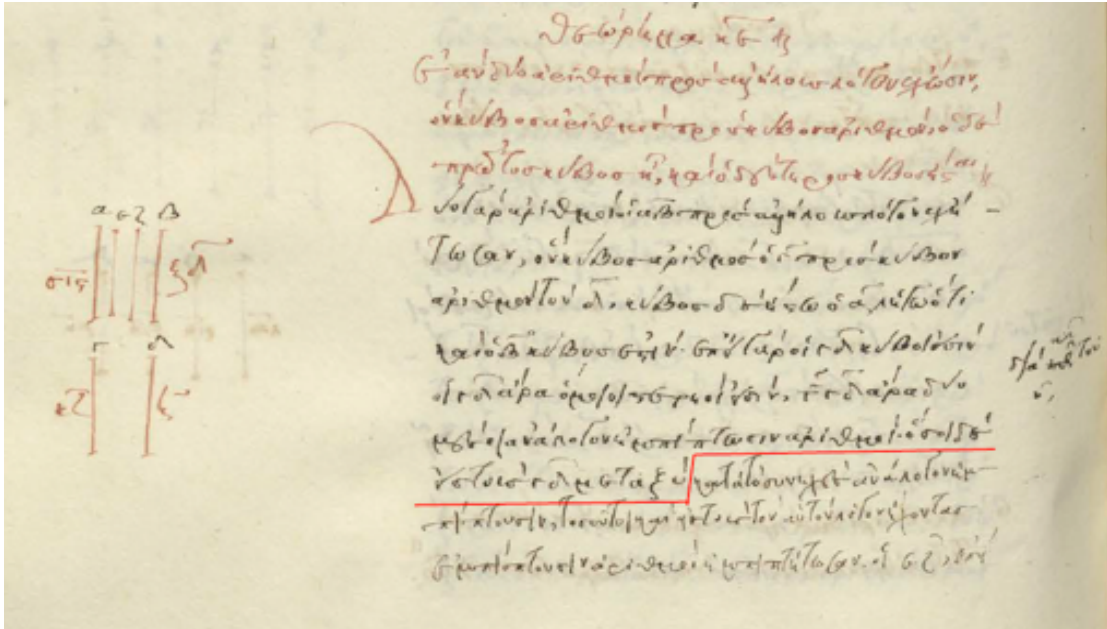 θεώρημα κε
ἐὰν δύο ἀριθμοὶ πρὸς ἀλλήλους λόγον ἔχωσιν,
ὃν κύβος ἀριθμὸς πρὸς κύβον ἀριθμὸν, ὁ δὲ
πρῶτος κύβος ἦ, καὶ ὁ δεύτερος κύβος ἔσται
Δύο γὰρ ἀριθμοὶ οἱ αβ πρὸς ἀλλήλους λόγον ἐχέ-
τωσαν, ὃν κύβος ἀριθμὸς ὁ γ πρὸς κύβον
ἀριθμὸν τὸν δ, κύβος δὲ ἔστω ὁ α, λέγω ὅτι
καὶ ὁ β κύβος ἐστιν. ἐπεὶ γὰρ οἱ γδ κύβοι εἰσὶν
οἱ γδ ἄρα ὅμοιοι στερεοὶ εἰσὶν, τῶν γδ ἄρα δύο
μέσοι ἀνάλογον ἐμπίπτωσιν ἀριθμοί. ὅσοι δὲ
εἰς τοὺς γδ μεταξὺ κατὰ τὸ συνεχὲς ἀνάλογον ἐμ-
πίπτουσιν, τοσοῦτοι καὶ εἰς τοὺς τὸν αὐτὸν λόγον ἔχοντας
ἐμπίπτουσιν ἀριθμοὶ ἐμπιπτέτωσαν οἱ εζ,
α ε ζ β
σις ξδ
γ δ
κζ